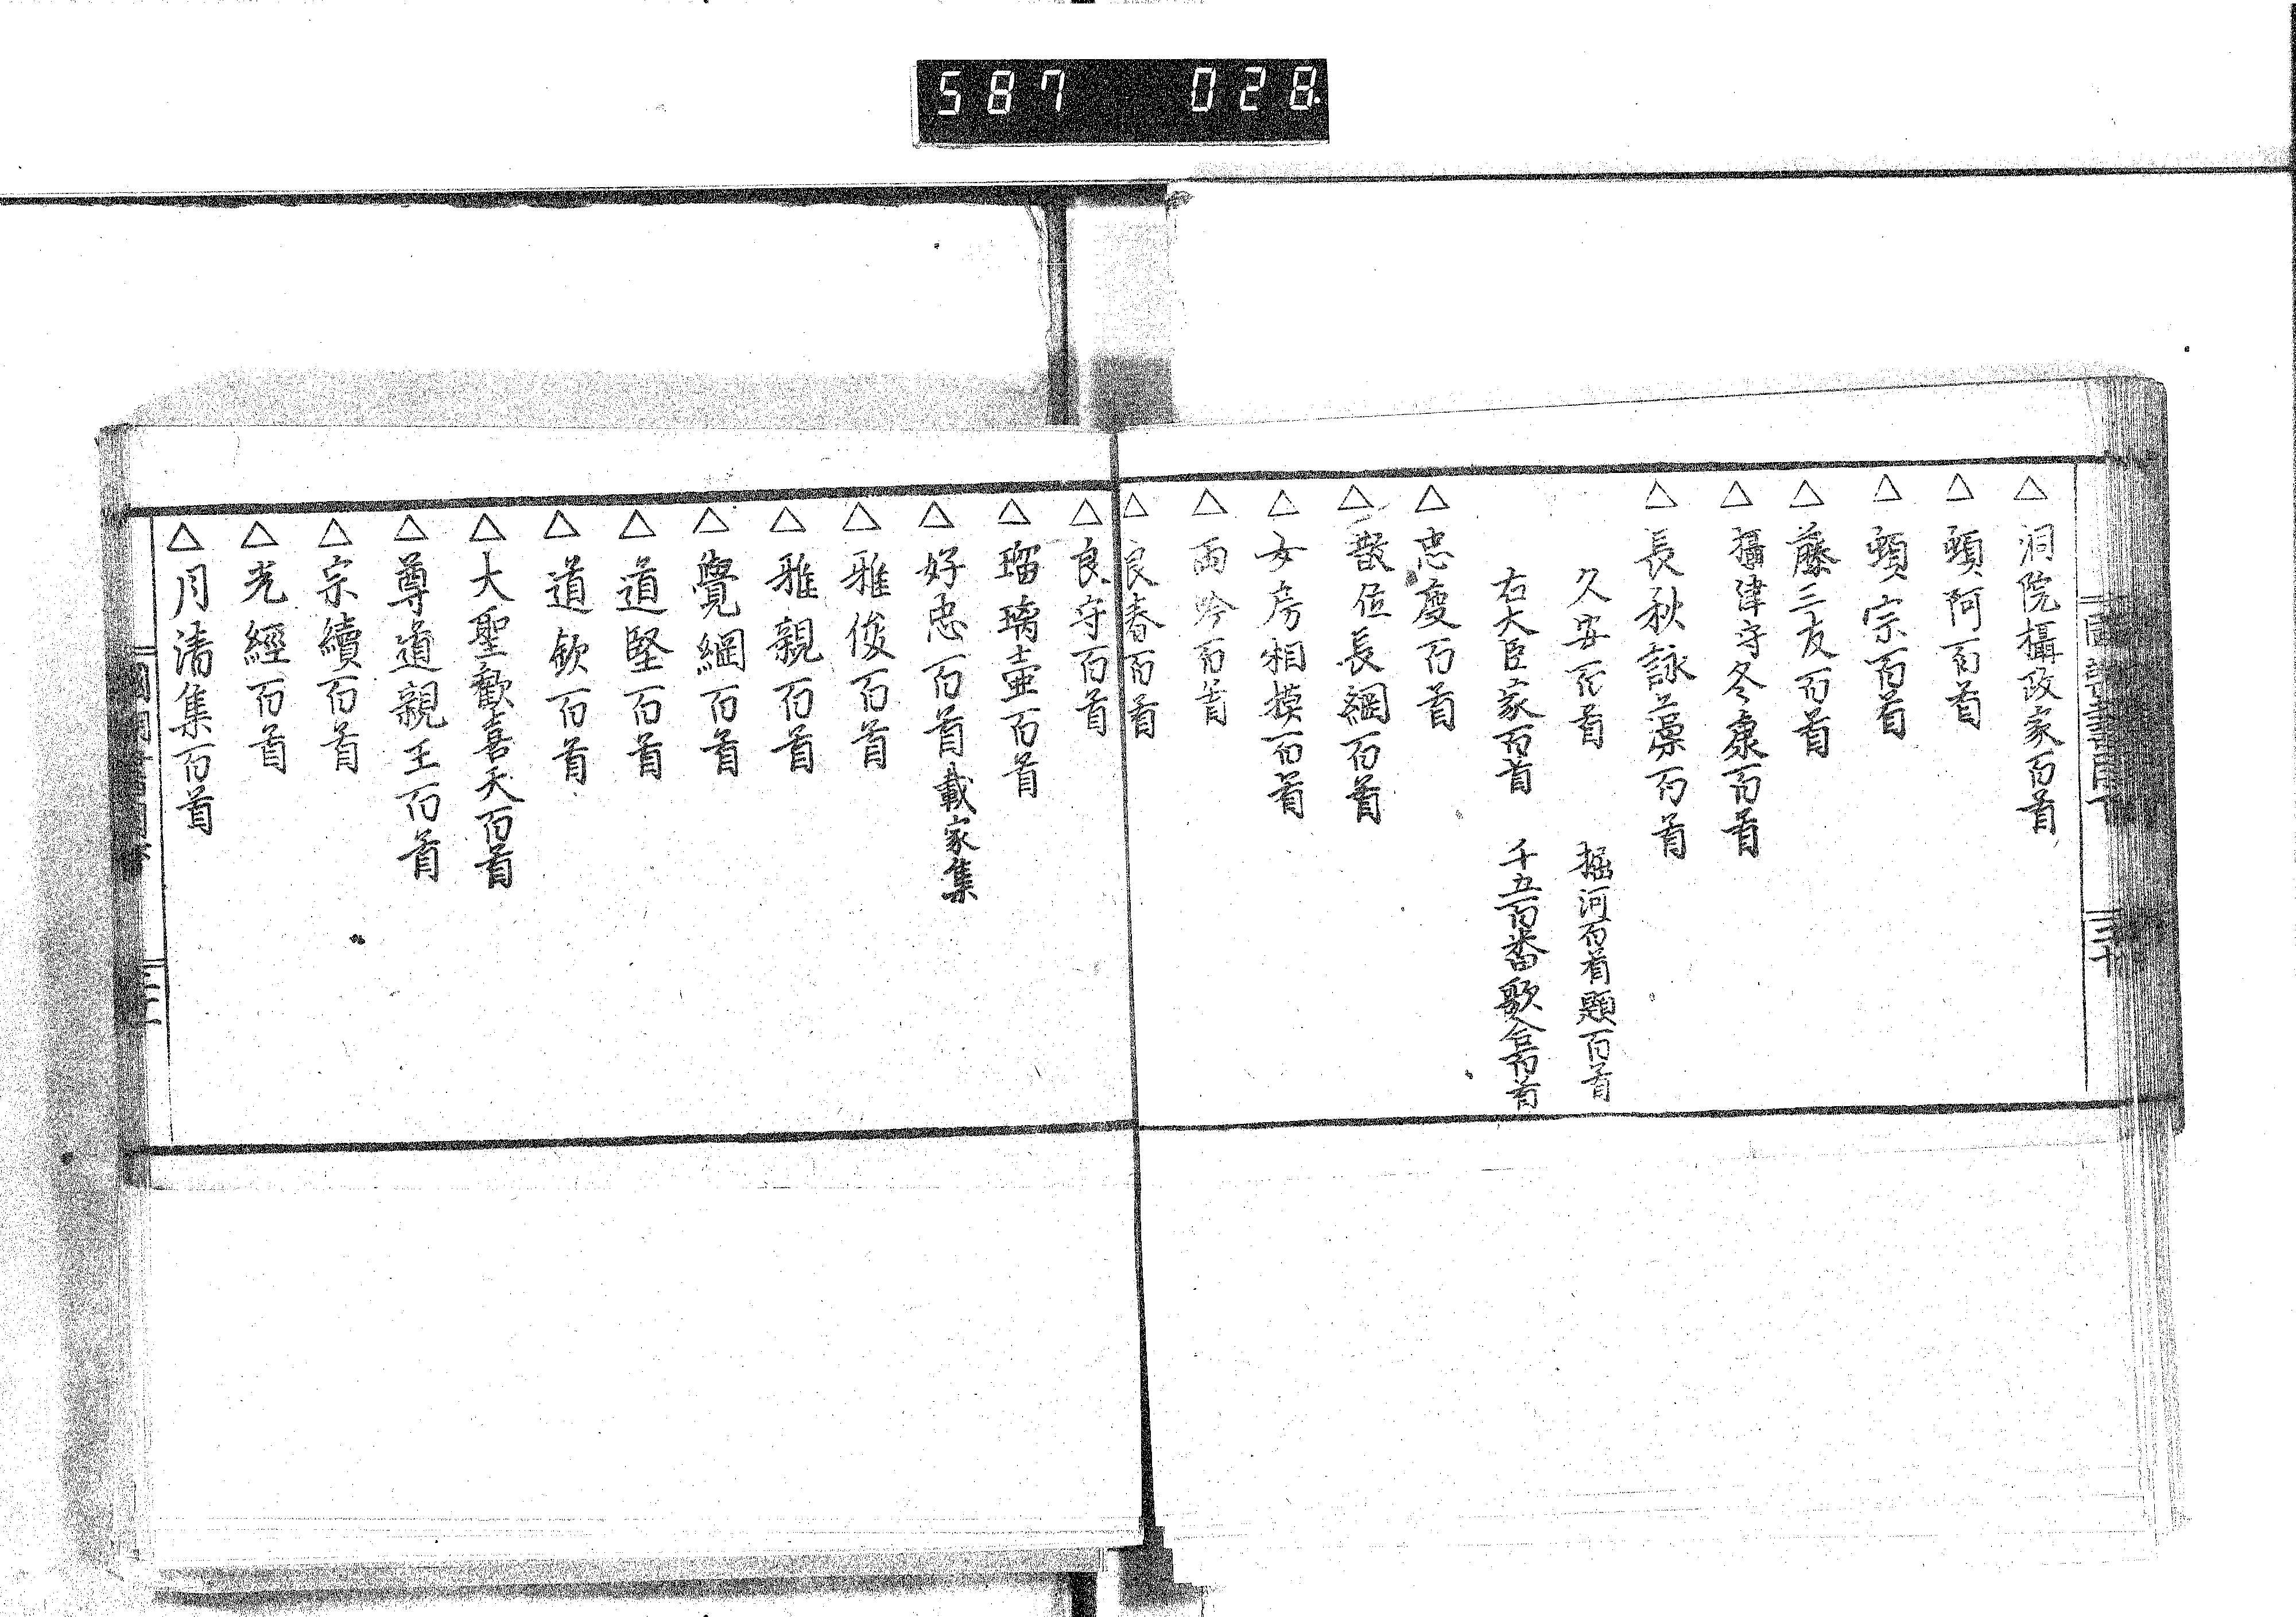 587 028
△洞院攝政家百首
△頓阿百首
△頓宗百首
△藤三友百首
△攝津守冬康百首
△長秋詠藻百首
久安百首 堀河百首題百首
右大臣家百首 千五百番歌合百首
△忠度百首
△散位長綱百首
△女房相摸百首
△雨吟百首
△良春百首
△良守百首
△瑠璃壺百首
△好忠百首載家集
△雅俊百首
△雅親百首
△覺綱百首
△道堅百首
△道欽百首
△大聖歡喜天百首
△尊道親王百首
△宗績百首
△光經百首
△月清集百首
三十